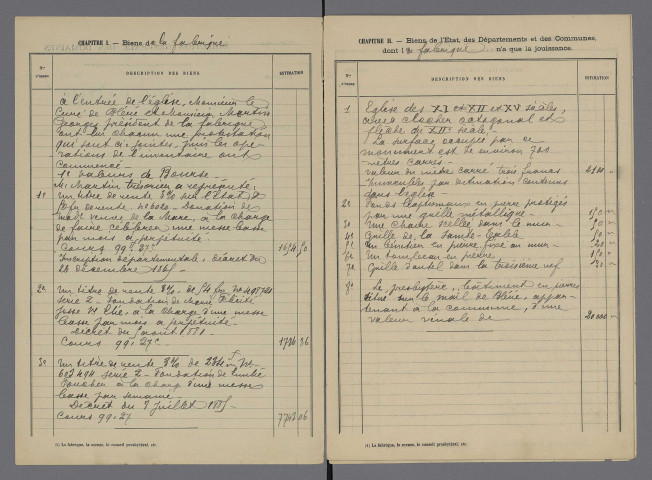 CHAPITRE I. — Biens de la fabrique
Nos d'ordre
DESCRIPTION DES BIENS
ESTIMATION
à l'entrée de l'église, Monsieur le
Curé de et Monsieur Martin
Georges président de la fabrique
ont lu chacun une protestation
qui sont ci-jointes, puis les opé-
rations de l'inventaire ont
commencé —
1° Valeurs de Bourse —
M. Martin trésorier a représenté:
1° Un titre de rente 3% sur l'Etat de
Donation de
Made veuve de la Mare, à la charge
de faire célébrer une messe basse
par mois à perpétuité —
Cours 99.27c
Inscription départementale, décret du
24 décembre
2° Un titre de rente 3% de
série 2 — Fondation de Marie
à la charge d'une messe
basse par mois à perpétuité —
Décret du août
Cours 99.27c 1786 36
3° Un titre de rente 3% de 234 f. No
série 2 — Fondation de
à la charge d'une messe
basse par semaine —
Décret du 7 juillet
Cours 99.27 7743 06
(1) La fabrique, la mense, le conseil presbytéral, etc.
CHAPITRE II. — Biens de l'État, des Départements et des Communes,
dont la fabrique n'a que la jouissance.
Nos d'ordre
DESCRIPTION DES BIENS
ESTIMATION
1 Eglise des XI et XII et XV siècles,
avec clocher octogonal et
flèche du XII siècle —
La surface occupée par ce
monument est de environ 700
mètres carrés —
Valeur du mètre carré trois francs 2100 "
Immeubles par destination contenus
dans l'église —
2° Fonds baptismaux en pierre protégés
par une grille métallique —
3° Une Chaire scellée dans le mur —
4° Grille de la Sainte-Table
5° Un bénitier en pierre fixé au mur —
6° Un tombeau en pierre
7° Grille d'autel dans la troisième nef
8° Le presbytère, bâtiment en pierres
situé sur le mail de appar-
tenant à la commune, d'une
valeur vénale de 20 000 "
(1) La fabrique, la mense, le conseil presbytéral, etc.